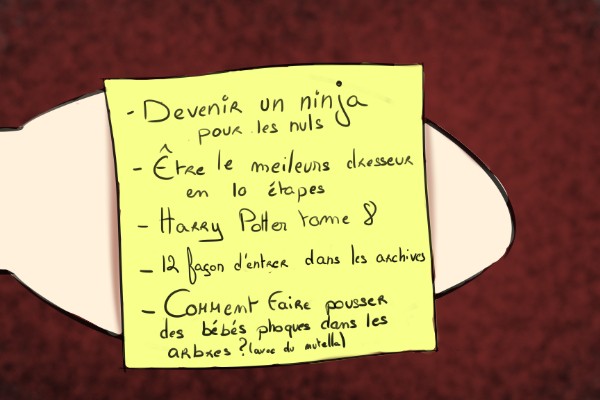 - Devenir un ninja
pour les nuls
- Être le meileurs dresseur
en 10 étapes
- Harry Potter tome 8
- 12 façon d'entrer dans les archives
- Comment faire pousser
des bébés phoques dans les
arbres ? (avec du nutella)